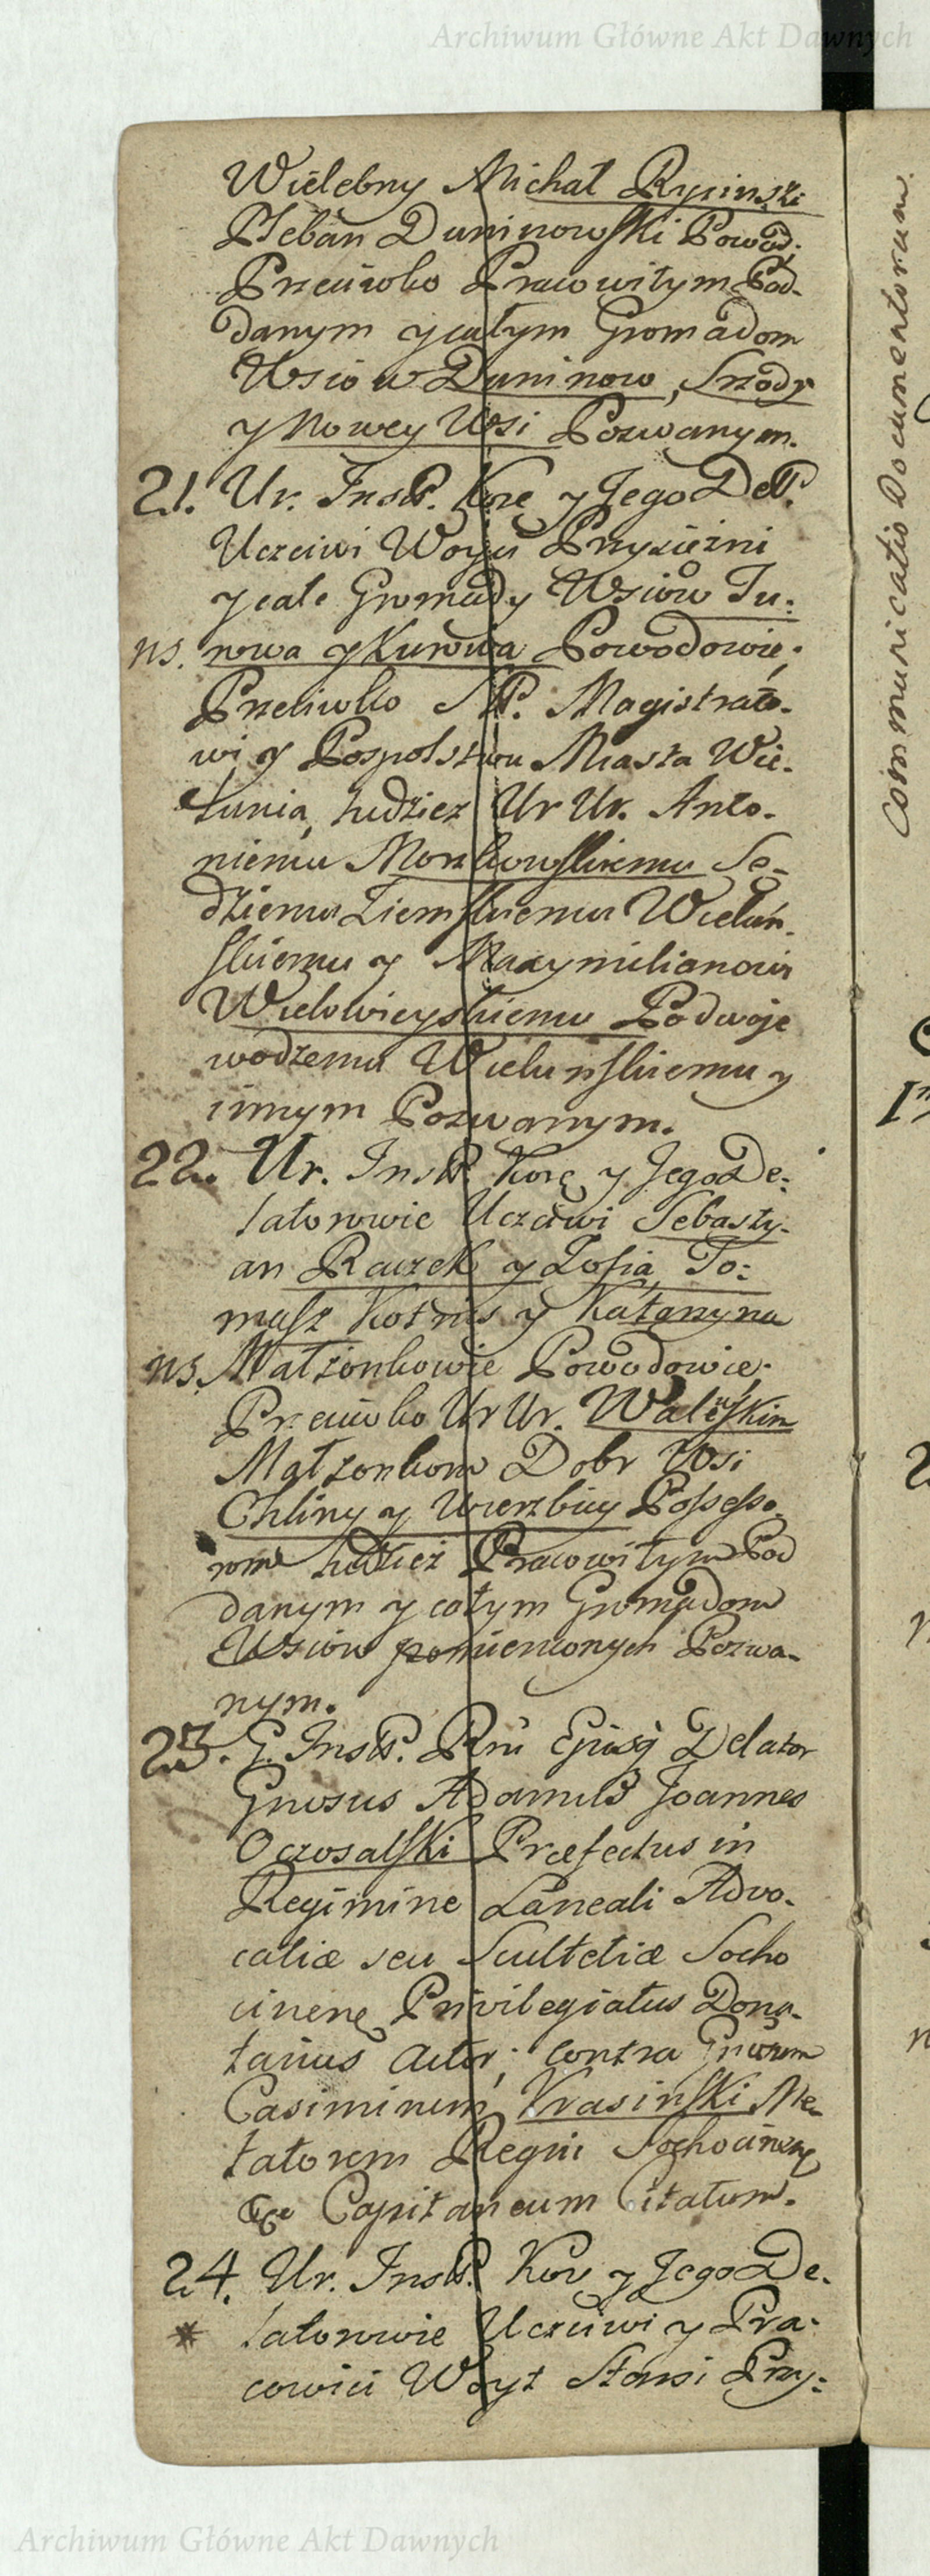 Archiwum Główne Akt Dawnych
Wielebny Michał Rypinski
Pleban Duninowski Powod;
Przeciwko Pracowitym Pod-
danym y całym Gromadom
Wsiow Duninow, Srzody
y Nowey Wsi Pozwanym.
21. Ur. Inst. Kor. y Jego Del.
Uczciwi Woyci Przysiężni
y całe Gromady Wsiow Tu:
ns. rowa y Kurowa Powodowie;
Przeciwko Magistrato-
wi y Pospolstwu Miasta Wie-
lunia, tudziez Ur Ur. Anto-
niemu Morzkowskiemu Sę-
dziemu Ziemskiemu Wieluń-
skiemu y Maxymilianowi
Wielowieyskiemu Podwoje
wodzemu Wielunskiemu y
innym Pozwanym.
22. Ur. Inst. Kor. y Jego De:
latorowie Uczciwi Sebasty-
an Raczek y Zofia, To:
masz Kotnis y Katarzyna
ns. Małżonkowie Powodowie;
Przeciwko Ur Ur. Walinskim
Małżonkom Dobr Wsi
Chliny y Wierzbicy Possesso-
rom tudzież Pracowitym Pod
danym y całym Gromadom
Wsiow pomienionych Pozwa-
nym.
23. G. Inst. Rni Delator
Gnosus Adamus Joannes
Oczosalski Præfectus in
Regimine Laneali Advo-
catiæ seu Scultetiæ Socho
cinens Privilegiatus Dona-
tarius Actor; contra Gnosum
Casimirum Krasinski Me-
tatorem Regni Sochocinens
Capitaneum Citatum.
24. Ur. Inst. Kor y Jego De.
* latorowie Uczciwi y Pra:
cowici Woyt Starsi Przy:
Communicatio Documentorum.
Archiwum Główne Akt Dawnych